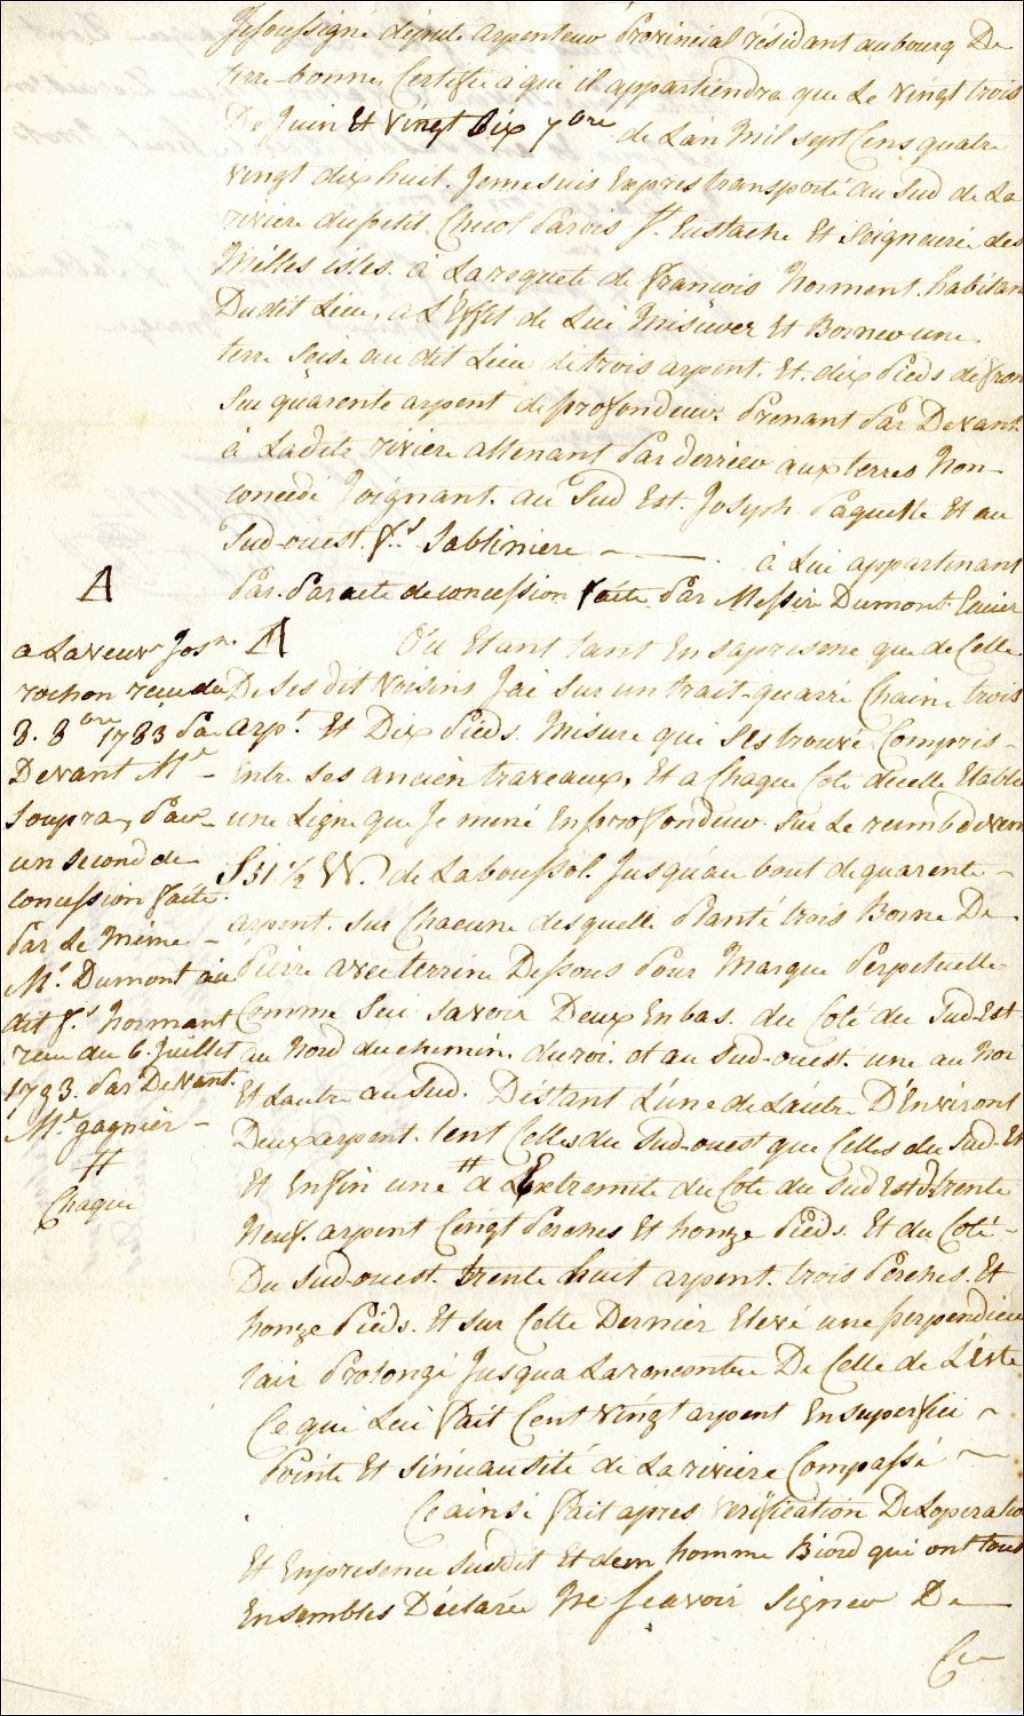 Jesoussigné député arpenteur Provincial résidant aubourg De
terre-bonne, Certifie à qui il appartiendra que Le vingt trois
De Juin Et Vingt Six 7bre de Lan Mil sept Cens quatre
vingt dix huit. Jemesuis Expres transporté au Sud de La
riviere dupetit Chicot Parois St. Eustache Et Seigneurie des
Milles isles. à Larequete de François Norment. habitan
Dudit Lieu, a L'Effet de Lui Misurer Et Borner une
terre Sise au dit Lieu de trois arpent. Et. dix Pieds de fron
Sur quarente arpent de profondeur. Prenant Par Devant
à Ladite riviere attenant Par derrier aux terres Non-
concedé Joignant. au Sud Est. Joseph Paquette Et au
Sud-ouest. Fs. Sablinniere — à Lui appartenant
Par. Par acte de concession faite Par Messire Dumont. Ecuier
A
a Laveur Josh.
rochon recu du
8. 8bre 1783 Pa
Devant Mr –
Soupra, Par –
un second de
Concession faite
Par Le Même –
Mr. Dumont au
dit Fs. Normant
recu du 6. Juillet
1793. Par Devant.
Me gagnier –
#
Chaque
A Ou Etant tant En sapresene que de Celle
De Ses dit Voisins Jai Sur un trait-quarre Chaine trois
arpt. Et Dix Pieds. Misure qui S'es trouvé Compris –
Entre Ses ancien traveaux, Et a Chaque Coté dicelle Etablie
une Ligne que Je mené En profondeur Sur Le rumb de ven
S 51 ½ W. de Laboussol. Jusqu'au bout de quarente –
arpent. Sur Chacune desquelle Planté trois Borne De
Pierre avec terrine Dessous Pour Marque Perpetuelle
Comme Sui Savoir Deux En bas. du Coté du Sud-Est
au Nord du chemin. du roi. et au Sud-ouest. une au Nor
Et Lautre au Sud. Distant L'une de Lautre D'Environt
Deux arpent. tent Celles du Sud-ouest que Celles du Sud-Es
Et Enfin une # a L'Extremite du Cote du Sud Est de trente
Neuf. arpent Cengt Perches Et honze Pieds. Et du Coté –
Du Sud-ouest. trente huit arpent. trois Perches. Et
honze Pieds. Et sur Cette Dernier Elevé une perpendicu
lair Prolongé Jusqua Larencontre De Celle de L'Este
Ce qui Lui fait Cent Vingt arpent En superficie ~
Pointe Et Sinuausité de La riviere Compassé ~
Ce ainsi fait apres verification De Loperatio
Et Enpresence Susdit Et deux homme Biord qui ont tous
Ensembles Déclaré Ne Scavoir Signer De
Ce